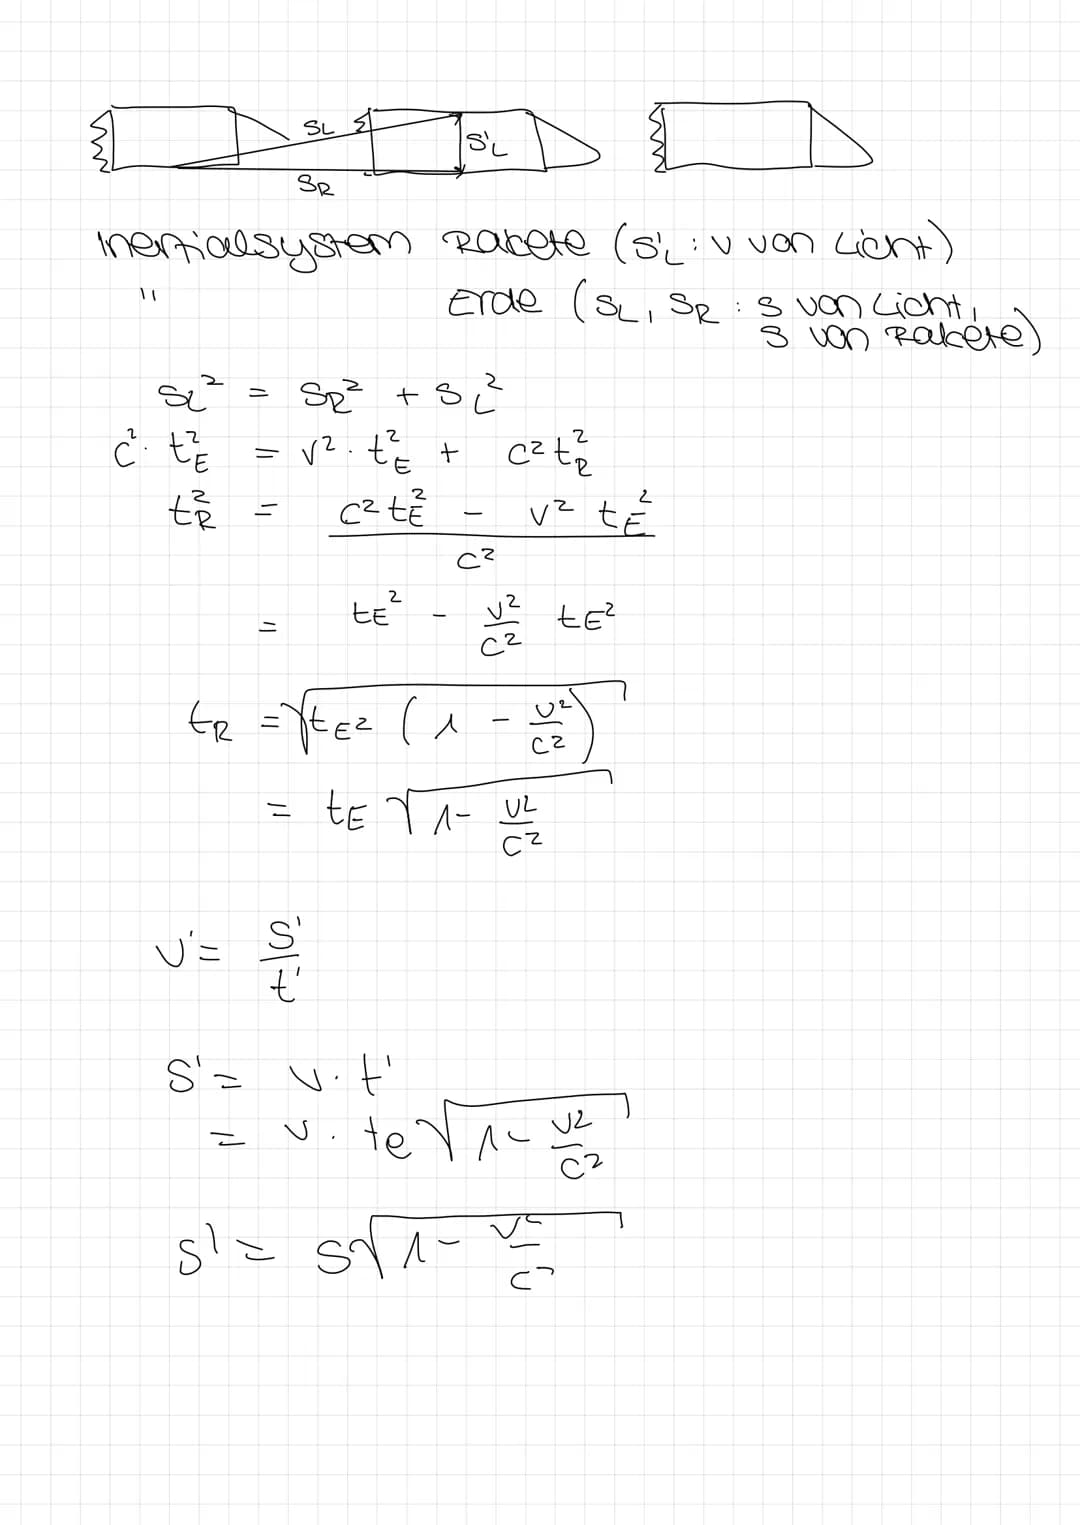 SL
S'L
SR
Inertialsystem Rakete (S'L : v von Licht)
" Erde (SL, SR : s von Licht,
s von Rakete)
SL² = SR² + SL²
c² · tE² = v² · tE² + c² tR²
tR² = c² tE² - v² tE²
c²
= tE² - v²/c² tE²
tR = √tE² (1 - v²/c²)
= tE √1 - v²/c²
v' = s'/t'
s' = v · t'
= v · te √1 - v²/c²
s' = s √1 - v²/c²